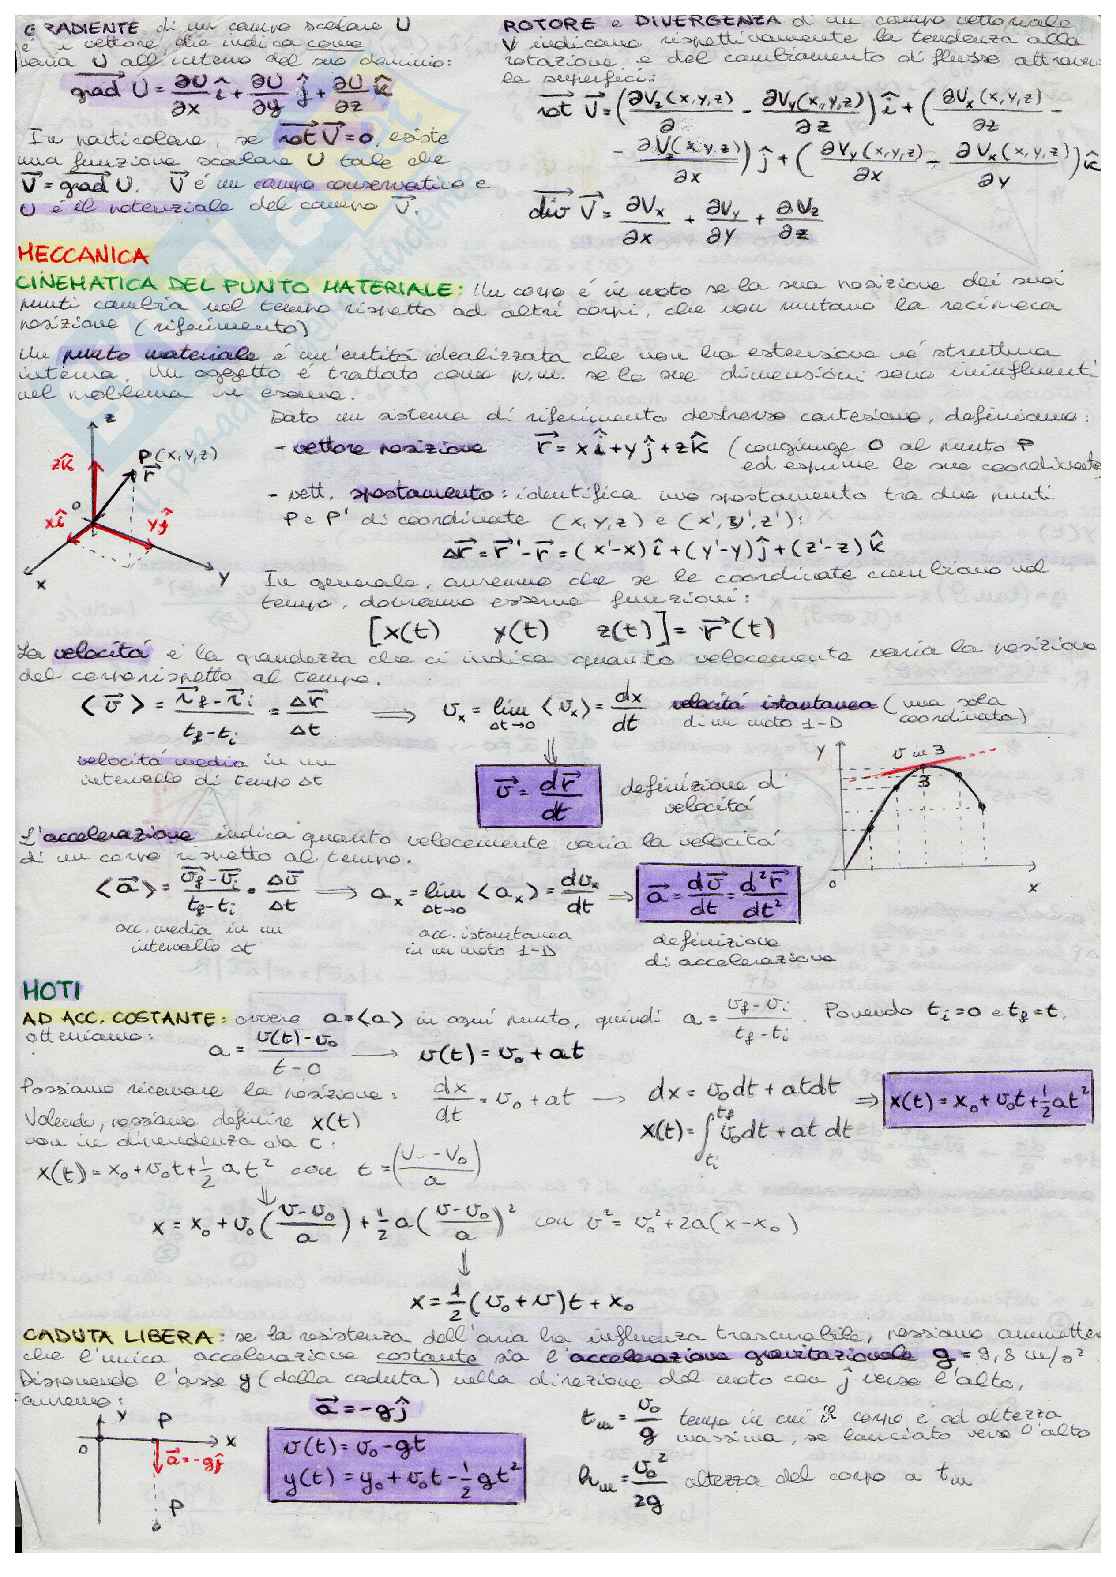 GRADIENTE di un campo scalare U
è il vettore che indica come
varia U all'interno del suo dominio:
grad U = ∂U/∂x î + ∂U/∂y ĵ + ∂U/∂z k̂
In particolare, se rot V = 0, esiste
una funzione scalare U tale che
V = grad U. V è un campo conservativo e
U è il potenziale del campo V.
ROTORE e DIVERGENZA di un campo vettoriale
V indicano rispettivamente la tendenza alla
rotazione e del cambiamento di flusso attraver
le superfici:
rot V = (∂Vz(x,y,z)/∂ - ∂Vy(x,y,z)/∂z) î + (∂Vx(x,y,z)/∂z -
- ∂Vz(x,y,z)/∂x) ĵ + (∂Vy(x,y,z)/∂x - ∂Vx(x,y,z)/∂y) k̂
div V = ∂Vx/∂x + ∂Vy/∂y + ∂Vz/∂z
MECCANICA
CINEMATICA DEL PUNTO MATERIALE: Un corpo è in moto se la sua posizione dei suoi
punti cambia nel tempo rispetto ad altri corpi, che non mutano la reciproca
posizione (riferimento)
Un punto materiale è un'entità idealizzata che non ha estensione né struttura
interna. Un oggetto è trattato come p.m. se le sue dimensioni sono ininfluenti
nel problema in esame.
Dato un sistema di riferimento destrorso cartesiano, definiamo:
- vettore posizione r = x î + y ĵ + z k̂ (congiunge O al punto P
ed esprime le sue coordinate
- vett. spostamento: identifica uno spostamento tra due punti
P e P' di coordinate (x,y,z) e (x',y',z'):
Δr = r' - r = (x'-x) î + (y'-y) ĵ + (z'-z) k̂
z
P(x,y,z)
r
zk̂
o
xî
yĵ
x
y
In generale, avremo che se le coordinate cambiano nel
tempo, dovranno essere funzioni:
[x(t) y(t) z(t)] = r(t)
La velocità è la grandezza che ci indica quanto velocemente varia la posizione
del corpo rispetto al tempo.
⟨v⟩ = (rf - ri)/(tf - ti) = Δr/Δt ⟹ vx = lim Δt→0 ⟨vx⟩ = dx/dt velocità istantanea (una sola
di un moto 1-D coordinata)
velocità media in un
intervallo di tempo Δt
v = dr/dt definizione di
velocità
y
v in 3
3
o
x
L'accelerazione indica quanto velocemente varia la velocità
di un corpo rispetto al tempo.
⟨a⟩ = (vf - vi)/(tf - ti) = Δv/Δt ⟹ ax = lim Δt→0 ⟨ax⟩ = dvx/dt ⟹ a = dv/dt = d²r/dt²
acc. media in un
intervallo Δt
acc. istantanea
in un moto 1-D
definizione
di accelerazione
MOTI
AD ACC. COSTANTE: ovvero a = ⟨a⟩ in ogni punto, quindi a = (vf - vi)/(tf - ti) Ponendo ti = 0 e tf = t,
otteniamo:
a = (v(t) - v₀)/(t - 0) → v(t) = v₀ + at
Possiamo ricavare la posizione: dx/dt = v₀ + at → dx = v₀dt + atdt
x(t) = ∫ti tf v₀dt + at dt ⟹ x(t) = x₀ + v₀t + ½at²
Volendo, possiamo definire x(t)
non in dipendenza da t:
x(t) = x₀ + v₀t + ½at² con t = ((v - v₀)/a)
⇓
x = x₀ + v₀((v - v₀)/a) + ½a((v - v₀)/a)² con v² = v₀² + 2a(x - x₀)
↓
x = ½(v₀ + v)t + x₀
CADUTA LIBERA: se la resistenza dell'aria ha influenza trascurabile, possiamo ammetter
che l'unica accelerazione costante sia l'accelerazione gravitazionale g = 9,8 m/s².
Disponendo l'asse y (della caduta) nella direzione del moto con ĵ verso l'alto,
avremo:
a = -gĵ
v(t) = v₀ - gt
y(t) = y₀ + v₀t - ½gt²
y
P
o
x
a = -gĵ
P
tm = v₀/g tempo in cui il corpo è ad altezza
massima, se lanciato verso l'alto
hm = v₀²/2g altezza del corpo a tm